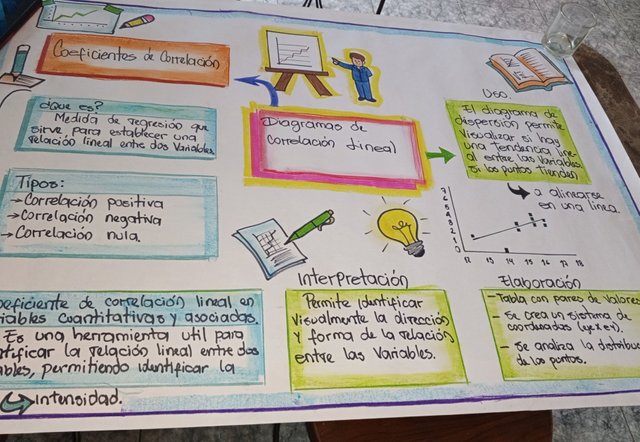 Coeficientes de Correlación
¿Que es?
Medida de regresión que
sirve para establecer una
relación lineal entre dos Variables
Tipos:
→Correlación positiva
→correlación negativa
→Correlación nula.
coeficiente de correlación lineal en
variables cuantitativas y asociadas.
Es una herramienta util para
la relación lineal entre dos
permitiendo identificar la
intensidad.
Diagramas de
correlación lineal
Interpretación
Permite identificar
visualmente la dirección
y forma de la relación
entre las variables.
Uso.
El diagrama de
dispersión permite
visualizar si hay
una tendencia line
al entre las variables
Si los puntos tienden
a alinearse
en una linea.
12 13 14 15 16 17 18
Elaboración
- Tabla con pares de valores
- Se crea un sistema de
coordenadas (eje x e y).
- Se analiza la
de los puntos.